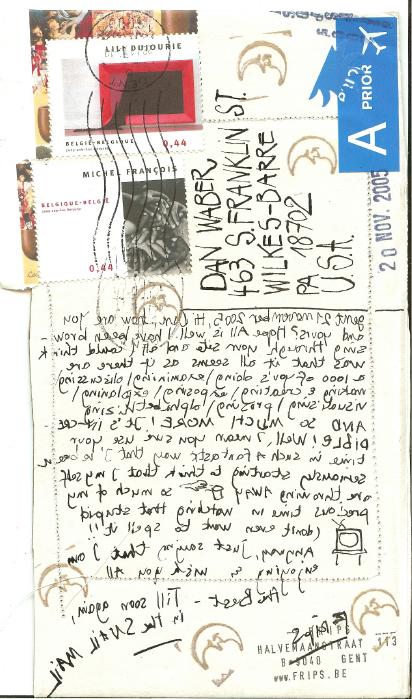 LILI DUJOURIE
BELGIË-BELGIQUE
0,44
MICHEL FRANÇOIS
BELGIQUE-BELGIË
0,44
A PRIOR
20 NOV. 2005
DAN WABER
463 S. FRANKLIN ST.
WILKES-BARRE
PA 18702
U.S.A.
gent 21 november 2005, Hi Dan, how are you
and yours? Hope All is well. I have been brow-
sing through your site and all I could think
was that it all seems as if there are
a 1000 of you's doing/examining/discussing/
making & creating/exposing/explaining/
visualising/pressing/
AND SO MUCH MORE! It's incre-
DIBLE! Well, I mean you sure use your
time in such a fantastic way that I've been
Seriously starting to think that I myself
are throwing Away so much of my
precious time in watching that stupid
(don't even want to spell it!!!
Anyway, Just saying that I am
enjoying & wish you All
the Best - Till soon again,
in the SNAIL MAIL
FRIPS
FRIPS
HALVEMAANSTRAAT 113
B-9040 GENT
www.FRIPS.BE